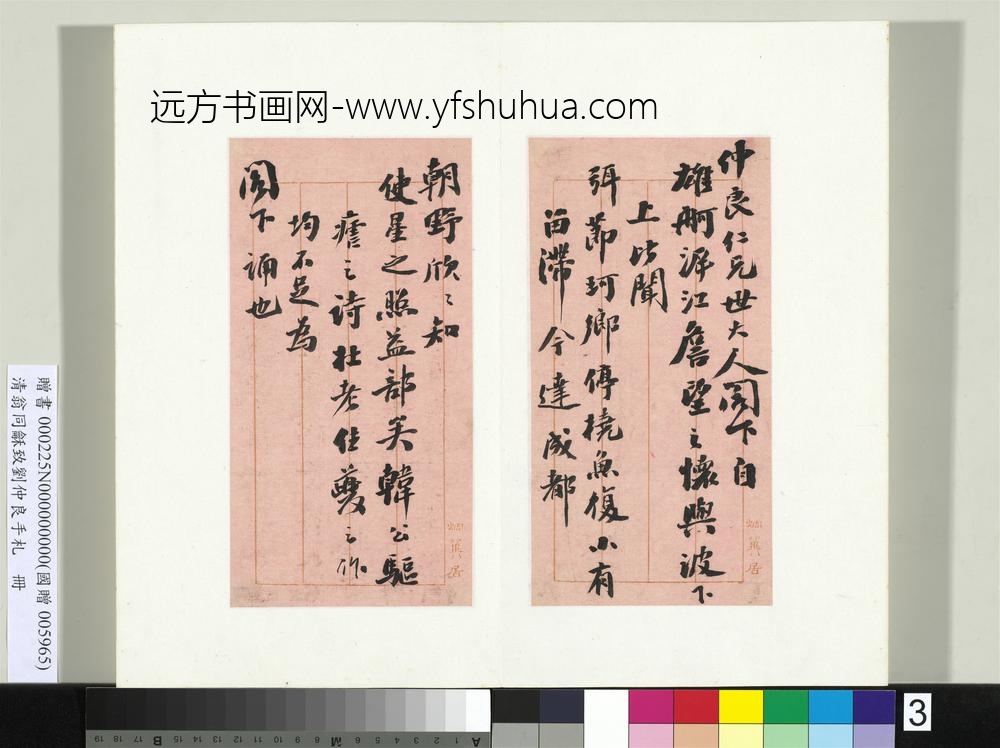 远方书画网-www.yfshuhua.com
仲良仁兄世大人閣下自
雄舸泝江詹望之懷與波下
上比聞
弭節珂鄉停橈魚復小有
留滯今達成都
朝野欣〻知
使星之照益部矣韓公驅
瘧之詩杜老住夔之作
均不足為
閣下誦也
贈書 000225N000000000(國贈 005965)
清翁同龢致劉仲良手札 冊
3